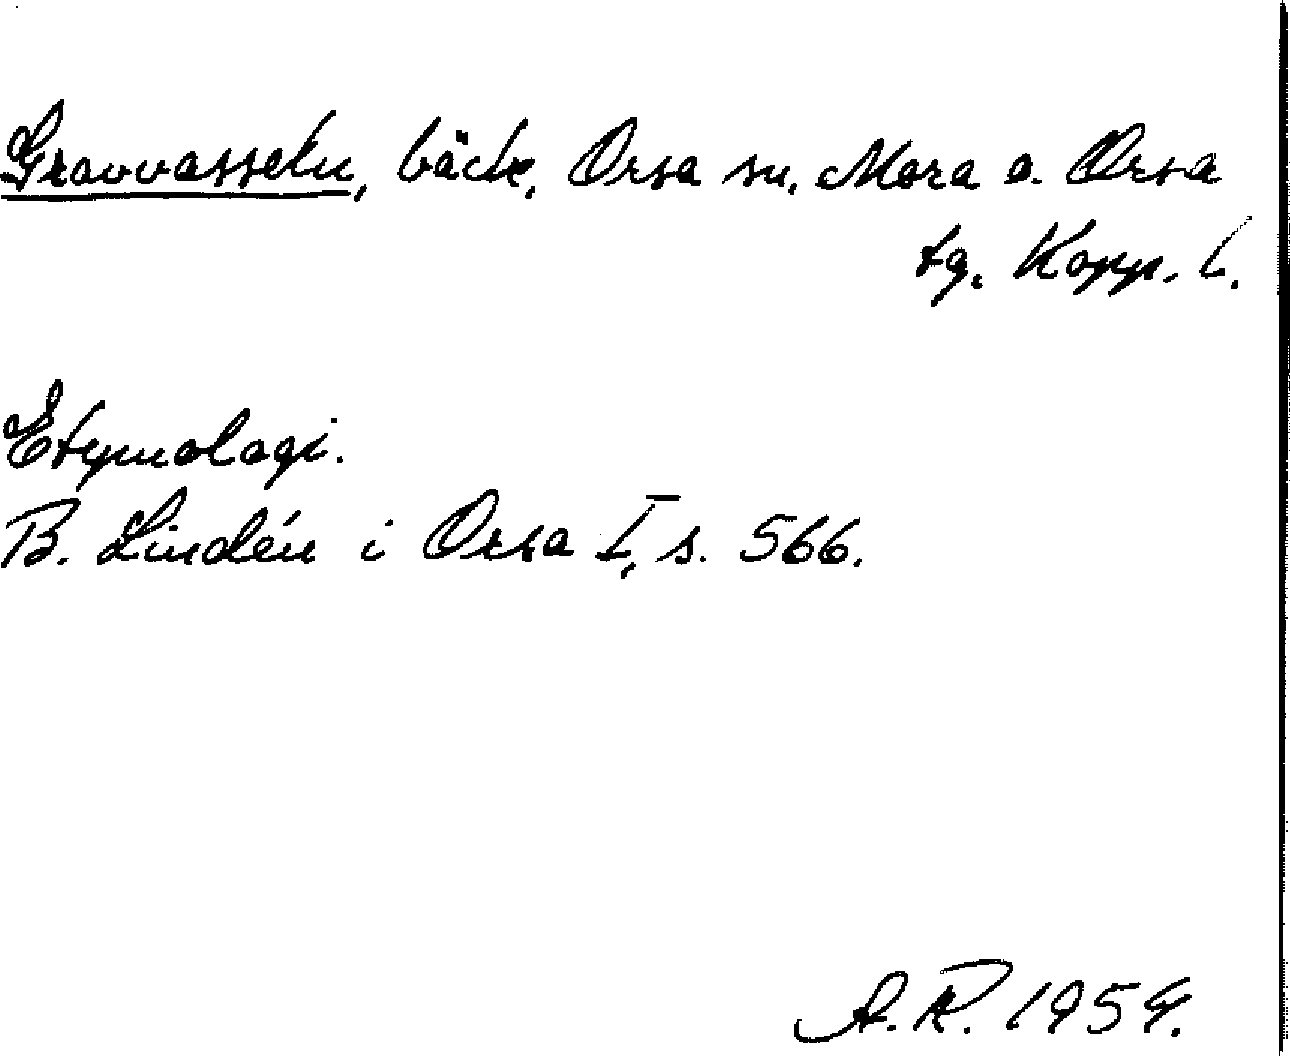 Gravvasseln, bäck, Orsa sn, Mora o. Orsa
tg. Kopp. l.
Etymologi.
B. Lindén i Orsa I, s. 566.
A. R. 1954.